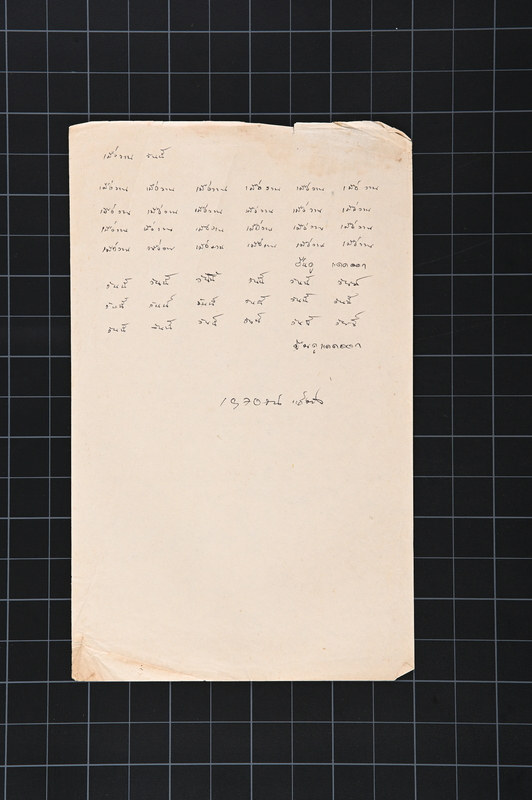 เมื่อวาน วันนี้
เมื่อวาน เมื่อวาน เมื่อวาน เมื่อวาน เมื่อวาน เมื่อวาน
เมื่อวาน เมื่อวาน เมื่อวาน เมื่อวาน เมื่อวาน เมื่อวาน
เมื่อวาน เมื่อวาน เมื่อวาน เมื่อวาน เมื่อวาน เมื่อวาน
เมื่อวาน เมื่อวาน เมื่อวาน เมื่อวาน เมื่อวาน เมื่อวาน
ฉันดู แดดออก
วันนี้ วันนี้ วันนี้ วันนี้ วันนี้ วันนี้
วันนี้ วันนี้ วันนี้ วันนี้ วันนี้ วันนี้
วันนี้ วันนี้ วันนี้ วันนี้ วันนี้ วันนี้
ฉันดูแดดออก